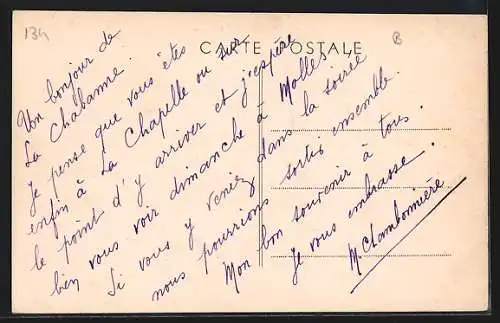 134
B
CARTE POSTALE
Un bonjour de
La Chabanne.
Je pense que vous êtes
enfin à La Chapelle ou sur
le point d'y arriver et j'espère
bien vous voir dimanche à Molles
Si vous y veniez dans la soirée
nous pourrions sortir ensemble.
Mon bon souvenir à tous.
Je vous embrasse.
M. Chambonnière